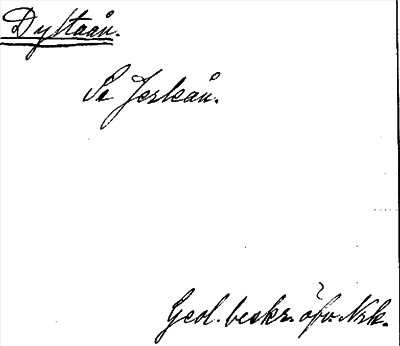 Dyltaån.
Se Jerleån.
Geol. beskr. öfv. Nrk.